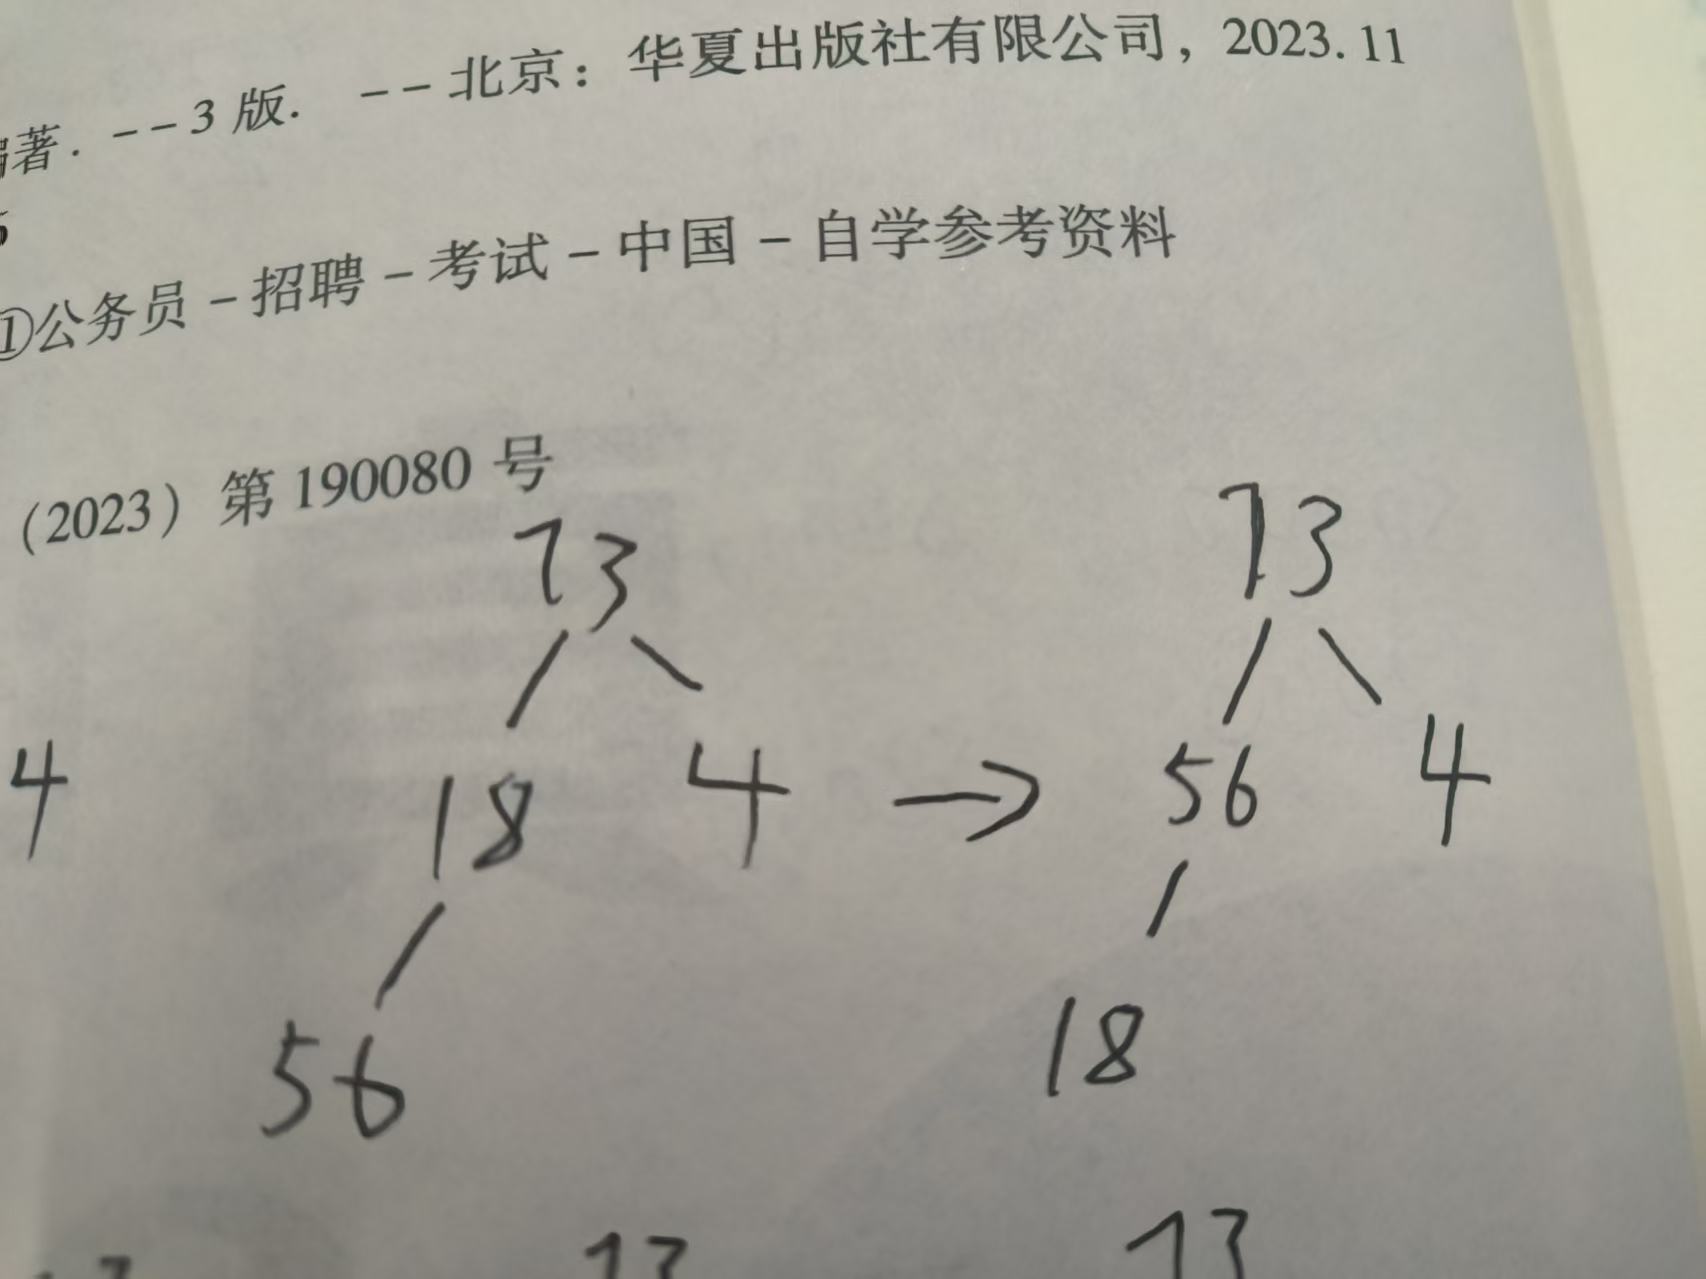 著. --3版. --北京：华夏出版社有限公司，2023.11
①公务员-招聘-考试-中国-自学参考资料
(2023) 第190080号
73 73
4 18 4 → 56 4
56 18
73 73